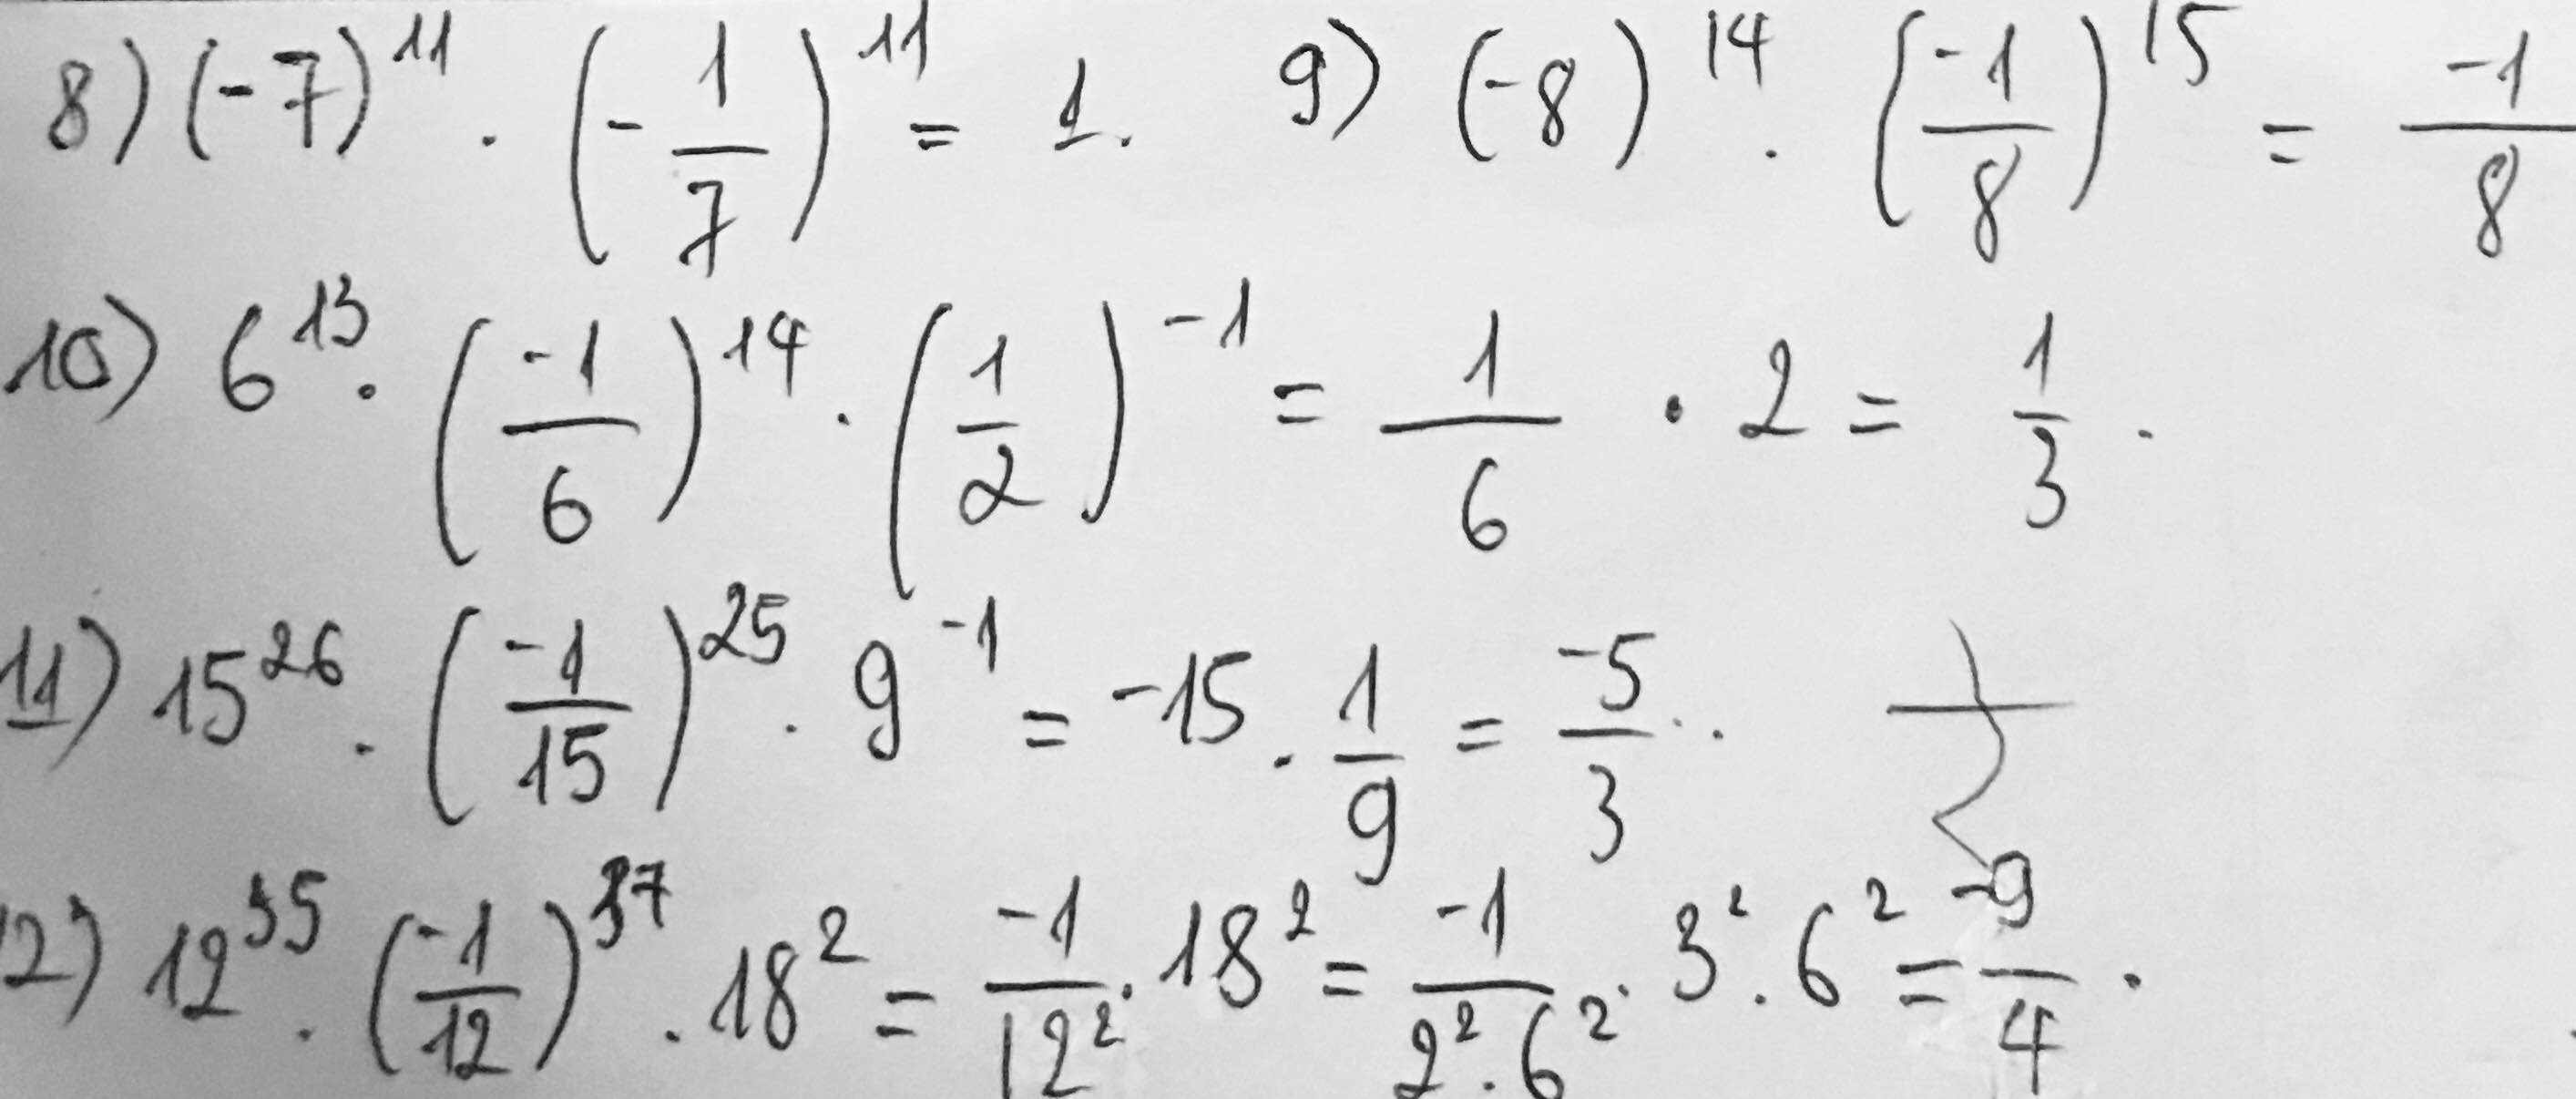 8) (-7)^11 . (-1/7)^11 = 1. 9) (-8)^14 . (-1/8)^15 = -1/8
10) 6^13 . (-1/6)^14 . (1/2)^-1 = 1/6 . 2 = 1/3 .
11) 15^26 . (-1/15)^25 . 9^-1 = -15 . 1/9 = -5/3 .
12) 12^35 . (-1/12)^37 . 18^2 = -1/12^2 . 18^2 = -1/2^2 . 6^2 . 3^2 . 6^2 = -9/4 .